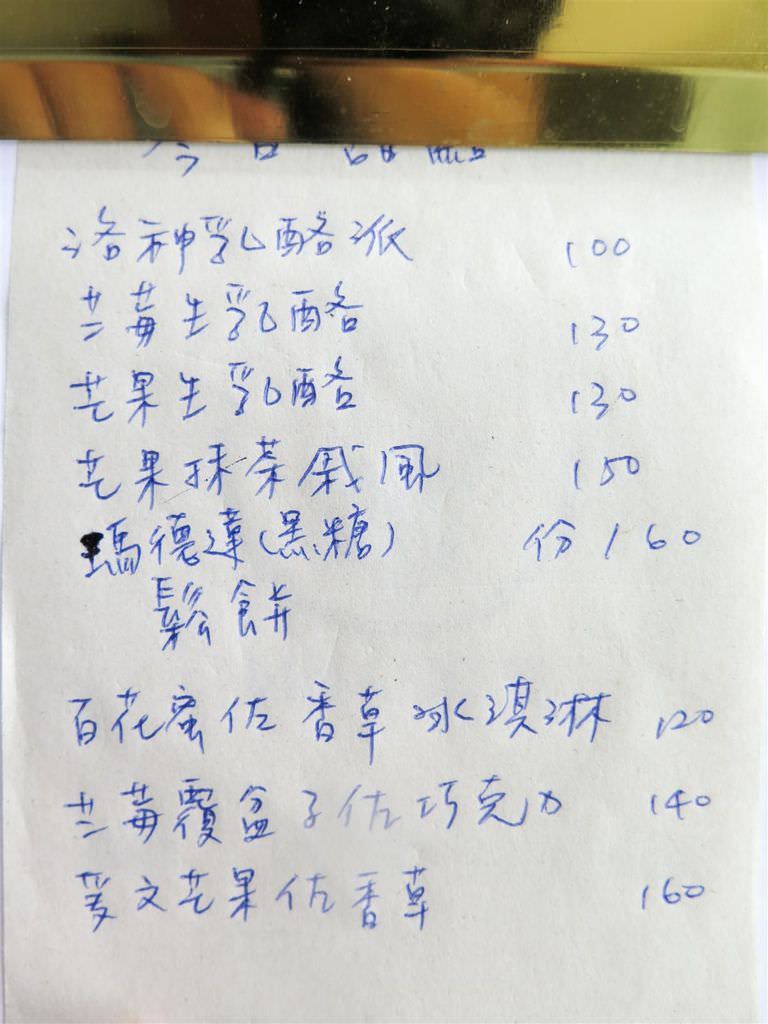 今日甜點
洛神乳酪派 100
芒莓生乳酪 130
芒果生乳酪 130
芒果抹茶戚風 150
瑪德蓮(黑糖) 份/60
鬆餅
百花蜜佐香草冰淇淋 120
芒莓覆盆子佐巧克力 140
愛文芒果佐香草 160